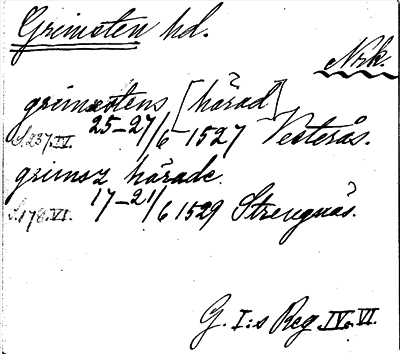 Grimsten hd.
Nrk.
grimxstens [härad]
S.237.IV. 25-27/6 1527 Vesterås.
grimsz härade.
S.178.VI. 17-21/6 1529 Strengnäs.
G. I:s Reg. IV o. VI.